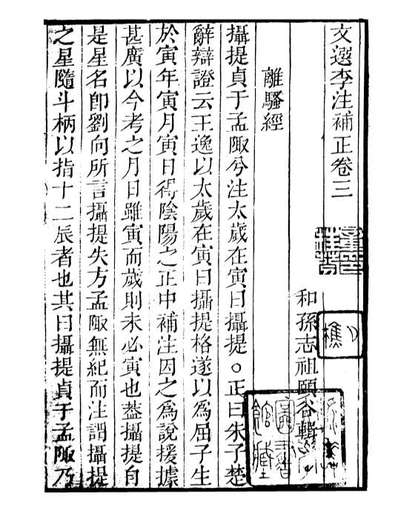 文選李注補正卷三
和孫志祖頤谷輯
離騷經
攝提貞于孟陬兮注太歲在寅曰攝提○正曰朱子楚
辭辯證云王逸以太歲在寅曰攝提格遂以為屈子生
於寅年寅月寅日得陰陽之正中補注因之為說援據
甚廣以今考之月日雖寅而歲則未必寅也葢攝提自
是星名卽劉向所言攝提失方孟陬無紀而注謂攝提
之星隨斗柄以指十二辰者也其曰攝提貞于孟陬乃